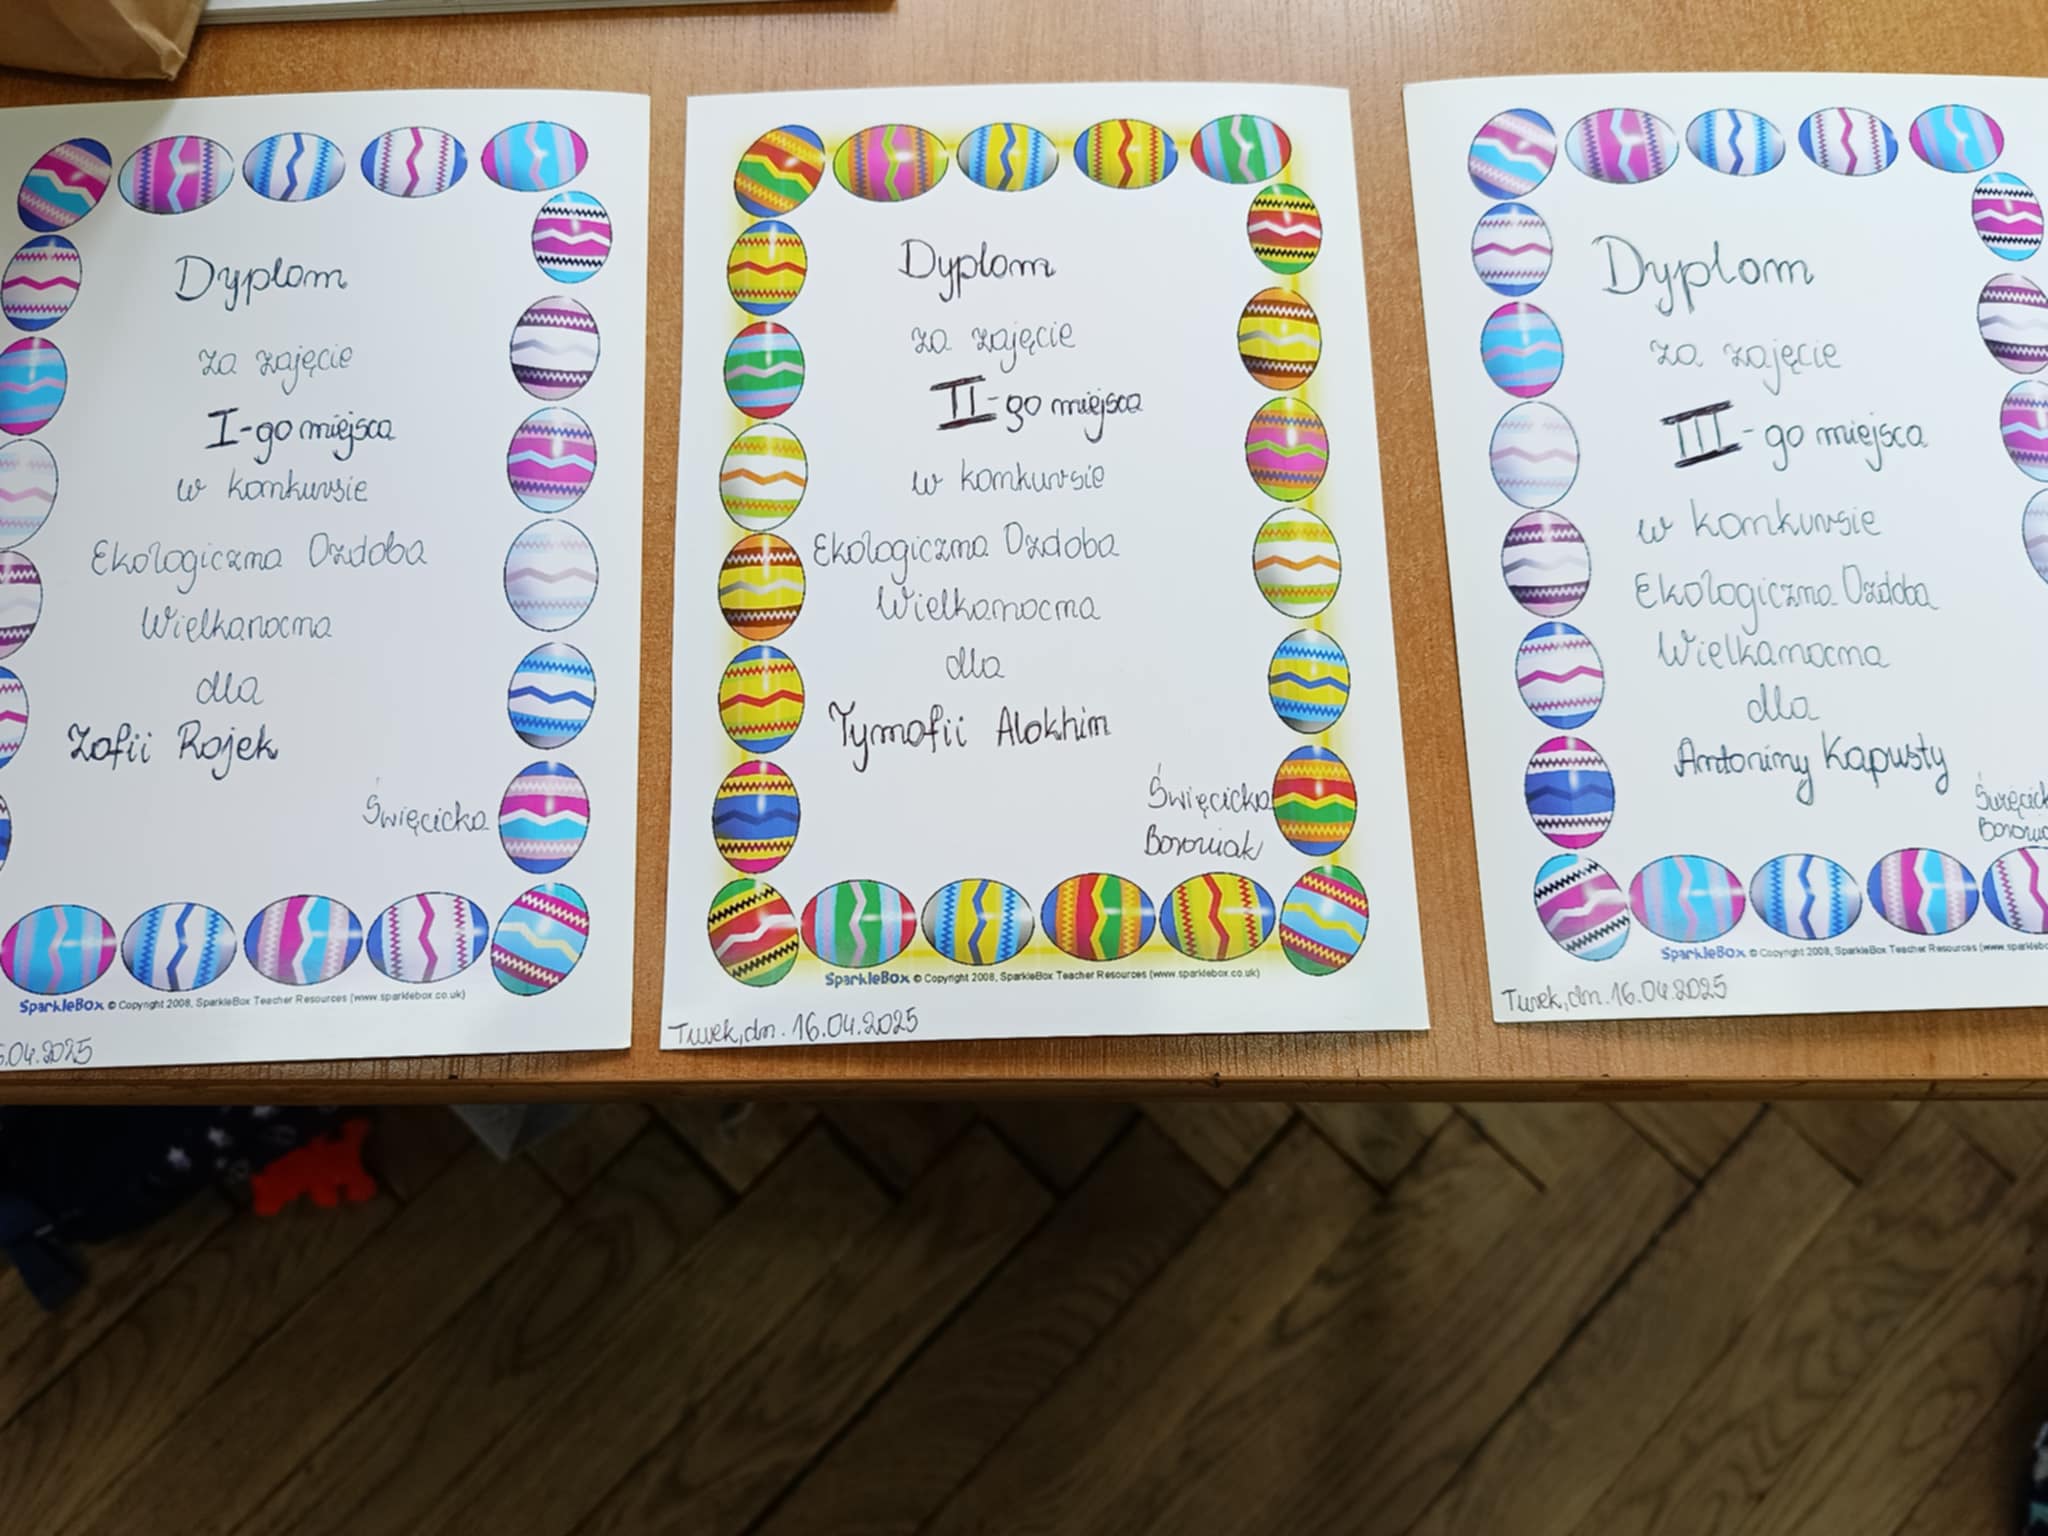 Dyplom
za zajęcie
I-go miejsca
w konkursie
Ekologiczna Ozdoba
Wielkanocna
dla
Zofii Rojek
Święcicka
SparkleBox © Copyright 2008, SparkleBox Teacher Resources (www.sparklebox.co.uk)
.04.2025
Dyplom
za zajęcie
II-go miejsca
w konkursie
Ekologiczna Ozdoba
Wielkanocna
dla
Tymofii Alokhin
Święcicka
Boroniak
SparkleBox © Copyright 2008, SparkleBox Teacher Resources (www.sparklebox.co.uk)
Turek, dn. 16.04.2025
Dyplom
za zajęcie
III-go miejsca
w konkursie
Ekologiczna Ozdoba
Wielkanocna
dla
Antoniny Kapusty
SparkleBox © Copyright 2008, SparkleBox Teacher Resources (www.sparklebo
Turek, dn. 16.04.2025